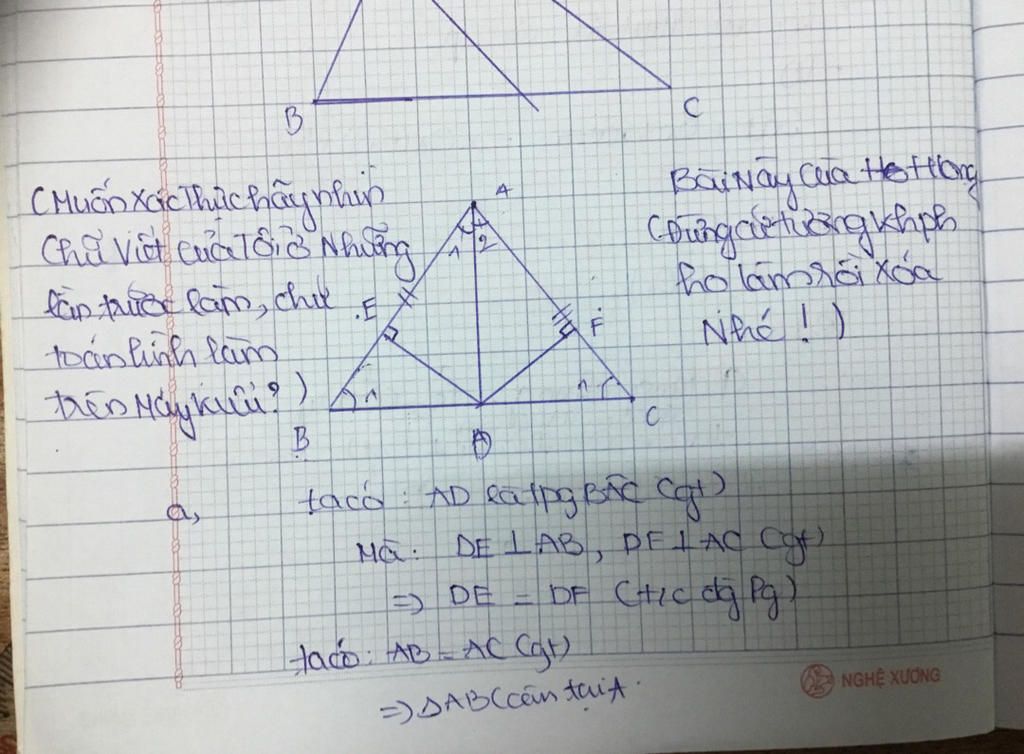 B
C
(Muốn xác thực hãy nhìn
chữ viết của Tôi ở Những
lần trước làm, chứ
toán hình làm
trên Máy kiểu?)
Bài Này của Hồng
(Đừng có tưởng
ho làm rồi xóa
Nhé!)
A
1 2
E
F
1
1
B
D
C
a, ta có: AD là tpg BÂC (gt)
Mà: DE ⊥ AB, DF ⊥ AC (gt)
=> DE = DF (t/c đg Pg)
ta có: AB = AC (gt)
=> ΔABC cân tại A
NGHỆ XƯƠNG